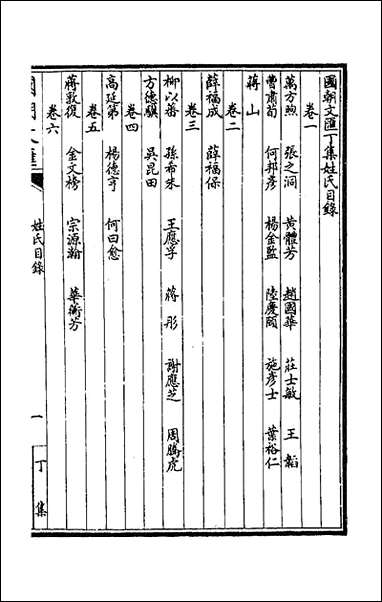 國朝文匯丁集姓氏目錄
卷一
萬方煦 張之洞 黃體芳 趙國華 莊士敏 王韜
曹肅荀 何邦彥 楊金監 陸慶頤 施彥士 葉裕仁
蔣山
卷二
薛福成 薛福保
卷三
柳以蕃 孫希朱 王應孚 蔣彤 謝應芝 周騰虎
方德驥 吳昆田
卷四
高延第 楊德亨 何曰愈
卷五
蔣敦復 金文榜 宗源瀚 華蘅芳
卷六
國朝文匯 姓氏目錄 一 丁集